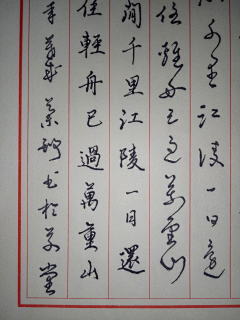 千里江陵一日還
住輕舟已過萬重山
間千里江陵一日還
住輕舟已過萬重山
书於草堂